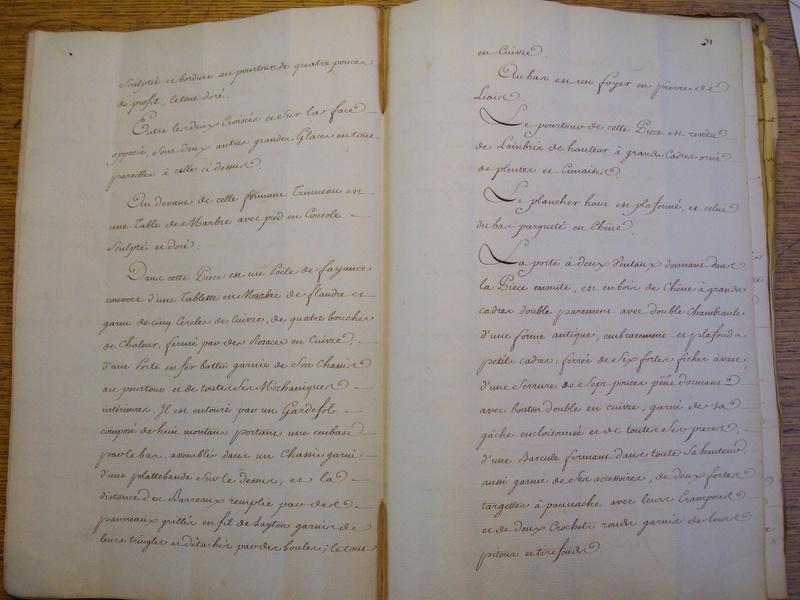 Sculptée et bordure au pourtour de quatre pouces
de profil, le tout doré.
Entre les deux Croisées et Sur la face
opposée, sont deux autres grandes Glaces en tout
pareilles à celle ci dessus.
Au devant de celle formant Trumeau est
une Table de Marbre avec pied en Console
Sculpté et doré.
Dans cette Pièce est un Poële de fayance
couvert d'une Tablette en Marbre de flandre et
garni de cinq Cercles de Cuivre, de quatre bouches
de Chaleur, fermé par des Rosaces en Cuivre,
d'une Porte en fer battu garnie de Son Chassis
au pourtour et de toutes Ses Méchaniques
intérieures. Il est entouré par un Gardefol
composé de huit montans portans une embase
par le bas, assemblés dans un Chassis garni
d'une plattebande Sur le dessus, et la
distance des Barreaux remplie par des
panneaux grillés en fil de Layton garnis de
leurs tringles et détachés par des boules; le tout
31
en Cuivre.
Au bas est un foyer en pierre de
Liais.
Le pourtour de cette Pièce est revêtu
de Lambris de hauteur à grands Cadres orné
de plintes et Cimaises.
Le plancher haut est plafonné, et celui
du bas parqueté en Chêne.
La porte à deux Ventaux donnant dans
la Pièce ensuite, est en bois de Chêne à grands
cadres double parement avec double Chambranle
d'une forme antique, embrasement et plafond à
petits cadres, ferrée de Six fortes fiches à vase,
d'une Serrure de Sept pouces pêne dormant
avec bouton double en cuivre, garni de sa
gâche encloisonnée et de toutes Ses pièces,
d'une Bascule formant dans toute Sa hauteur
aussi garnie de Ses accessoires, de deux fortes
targettes à pannache avec leurs Crampons
et de deux Crochets ronds garnis de leurs
pitons et tirefonds